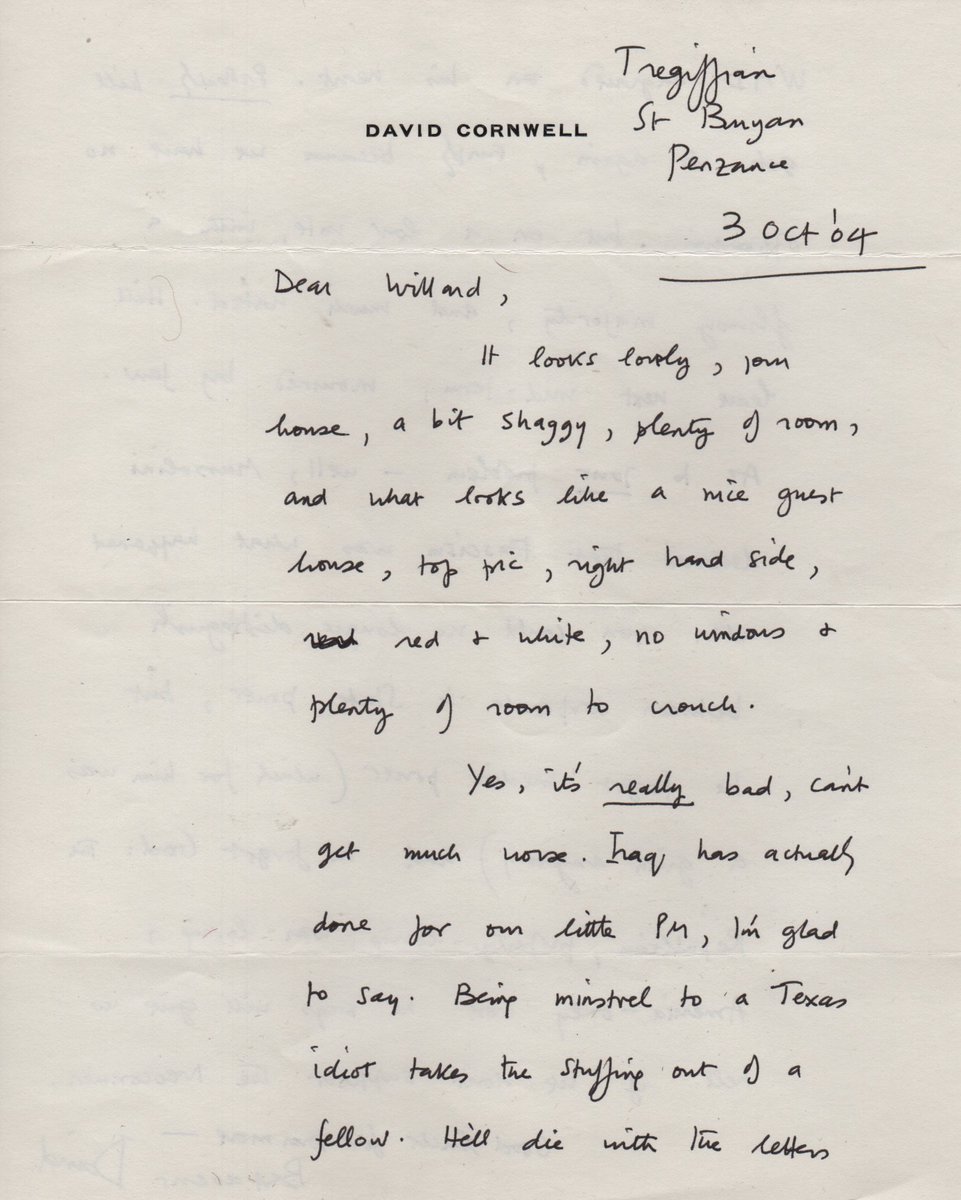 Tregiffian
DAVID CORNWELL
St Buryan
Penzance
3 Oct '04
Dear Willard,
It looks lovely, your
house, a bit shaggy, plenty of room,
and what looks like a nice guest
house, top pic, right hand side,
red & white, no windows &
plenty of room to crouch.
Yes, it's really bad, can't
get much worse. Iraq has actually
done for our little PM, I'm glad
to say. Being minstrel to a Texas
idiot takes the stuffing out of a
fellow. He'll die with the letters